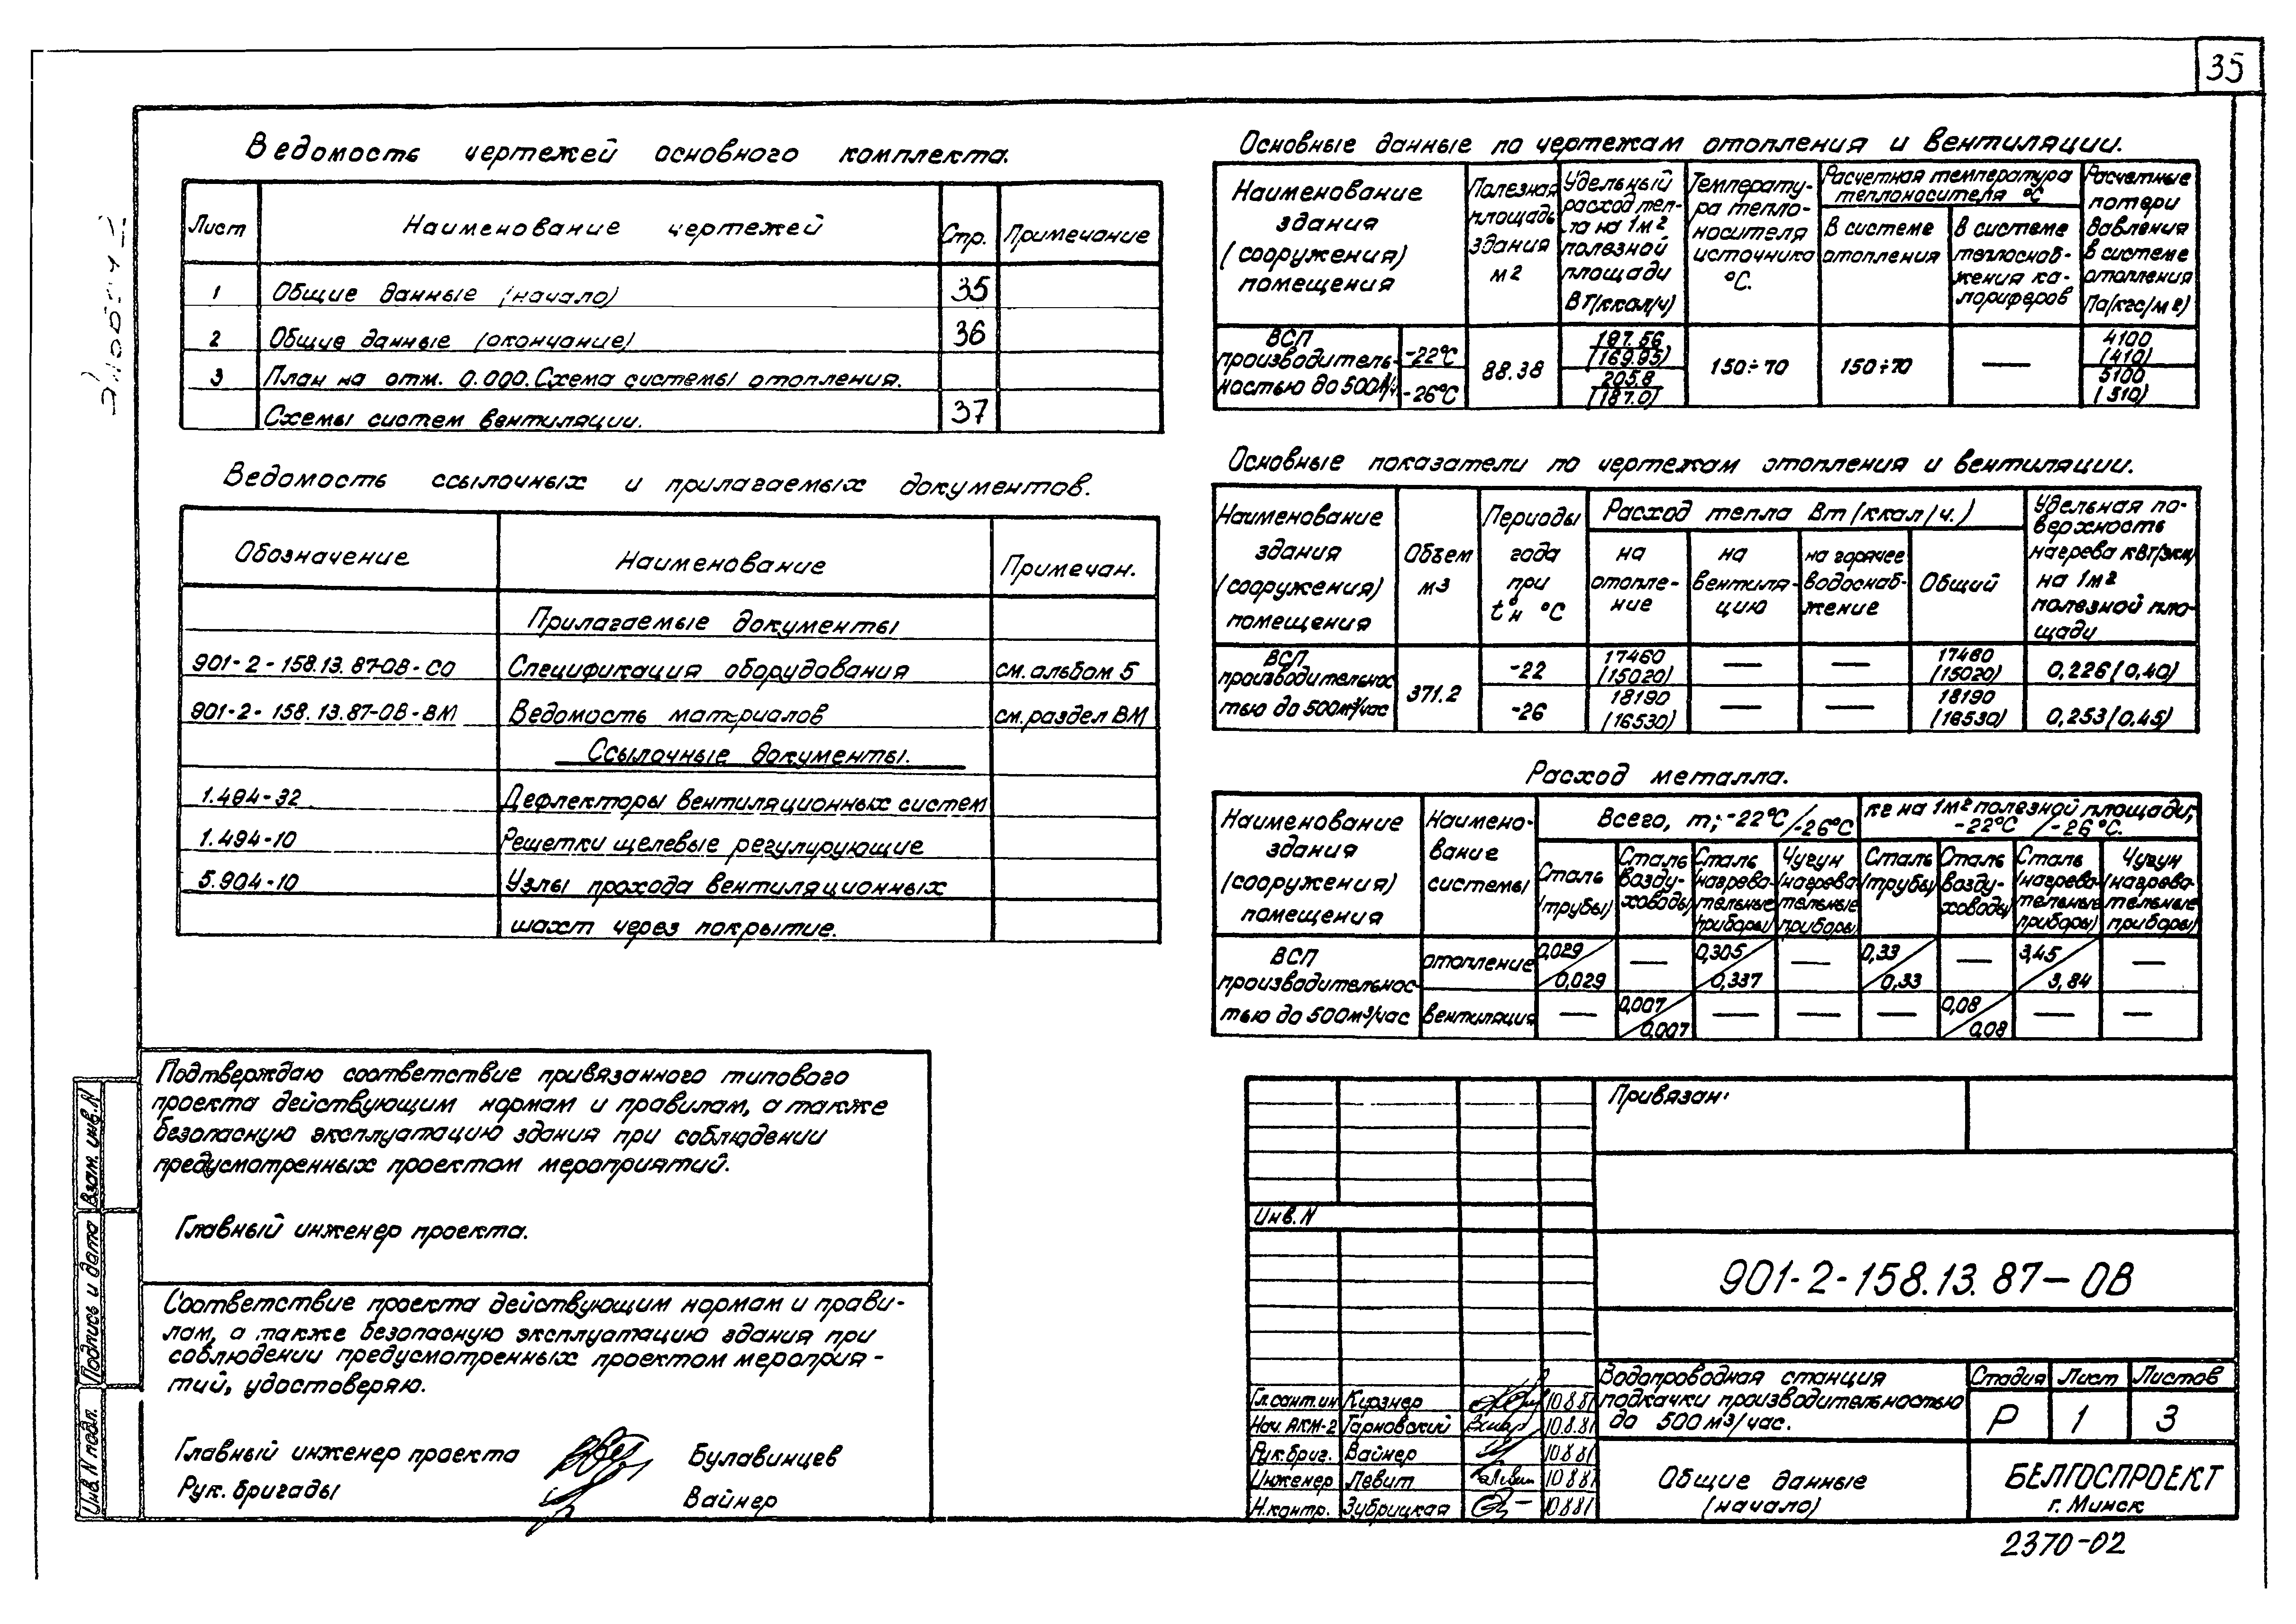 35
Ведомость чертежей основного комплекта.
Лист Наименование чертежей Стр. Примечание
1 Общие данные (начало) 35
2 Общие данные (окончание) 36
3 План на отм. 0.000. Схема системы отопления.
Схемы систем вентиляции. 37
Ведомость ссылочных и прилагаемых документов.
Обозначение Наименование Примечан.
Прилагаемые документы
901-2-158.13.87-ОВ-СО Спецификация оборудования см. альбом 5
901-2-158.13.87-ОВ-ВМ Ведомость материалов см. раздел ВМ
Ссылочные документы.
1.494-32 Дефлекторы вентиляционных систем
1.494-10 Решетки щелевые регулирующие
5.904-10 Узлы прохода вентиляционных
шахт через покрытие.
Подтверждаю соответствие привязанного типового
проекта действующим нормам и правилам, а также
безопасную эксплуатацию здания при соблюдении
предусмотренных проектом мероприятий.
Главный инженер проекта.
Соответствие проекта действующим нормам и прави-
лам, а также безопасную эксплуатацию здания при
соблюдении предусмотренных проектом мероприя-
тий, удостоверяю.
Главный инженер проекта Булавинцев
Рук. бригады Вайнер
Взам. инв. N
Подпись и дата
Инв. N подл.
Основные данные по чертежам отопления и вентиляции.
Наименование
здания
(сооружения)
помещения
Полезная
площадь
здания
м2
Удельный
расход теп-
ла на 1м2
полезной
площади
Вт(ккал/ч)
Температу-
ра тепло-
носителя
источника
°С.
Расчетная температура
теплоносителя °С
В системе
отопления
В системе
теплоснаб-
жения ка-
лориферов
Расчетные
потери
давления
в системе
отопления
Па(кгс/м2)
ВСП
производитель-
ностью до 500м3/ч.
-22°С
-26°С
88.38
197.56
(169.95)
205.8
(187.0)
150÷70
150÷70
—
4100
(410)
5100
(510)
Основные показатели по чертежам отопления и вентиляции.
Наименование
здания
(сооружения)
помещения
Объем
м3
Периоды
года
при
t°н °С
Расход тепла Вт (ккал/ч.)
на
отопле-
ние
на
вентиля-
цию
на горячее
водоснаб-
жение
Общий
Удельная по-
верхность
нагрева кВт/экм
на 1м2
полезной пло-
щади
ВСП
производительнос
тью до 500м3/час
371.2
-22 17460 (15020) — — 17460 (15020) 0,226(0,40)
-26 18190 (16530) — — 18190 (16530) 0,253(0,45)
Расход металла.
Наименование
здания
(сооружения)
помещения
Наимено-
вание
системы
Всего, т; -22°С/-26°С
кг на 1м2 полезной площади;
-22°С/-26°С.
Сталь
(трубы)
Сталь
возду-
ховоды
Сталь
(нагрева-
тельные
приборы)
Чугун
(нагрева-
тельные
приборы)
Сталь
(трубы)
Сталь
возду-
ховоды
Сталь
(нагрева-
тельные
приборы)
Чугун
(нагрева-
тельные
приборы)
ВСП
производительнос-
тью до 500м3/час
отопление 0,029/0,029 — 0,305/0,337 — 0,33/0,33 — 3,45/3,84 —
вентиляция — 0,007/0,007 — — — 0,08/0,08 — —
Привязан:
Инв. N
901-2-158.13.87-ОВ
Гл.сант.ин Кирзнер 10.8.87
Нач. АКМ-2 Тарновский 10.8.87
Рук.бриг. Вайнер 10.8.87
Инженер Левит 10.8.87
Н.контр. Зубрицкая 10.8.87
Водопроводная станция
подкачки производительностью
до 500 м3/час.
Стадия Лист Листов
Р 1 3
Общие данные
(начало)
БЕЛГОСПРОЕКТ
г. Минск
2370-02